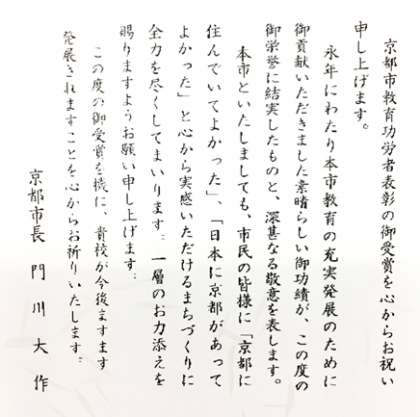 京都市教育功労者表彰の御受賞を心からお祝い
申し上げます。
永年にわたり本市教育の充実発展のために
御貢献いただきました素晴らしい御功績が、この度の
御栄誉に結実したものと、深甚なる敬意を表します。
本市といたしましても、市民の皆様に「京都に
住んでいてよかった」、「日本に京都があって
よかった」と心から実感いただけるまちづくりに
全力を尽くしてまいります。一層のお力添えを
賜りますようお願い申し上げます。
この度の御受賞を機に、貴校が今後ますます
発展されますことを心からお祈りいたします。
京都市長 門川大作